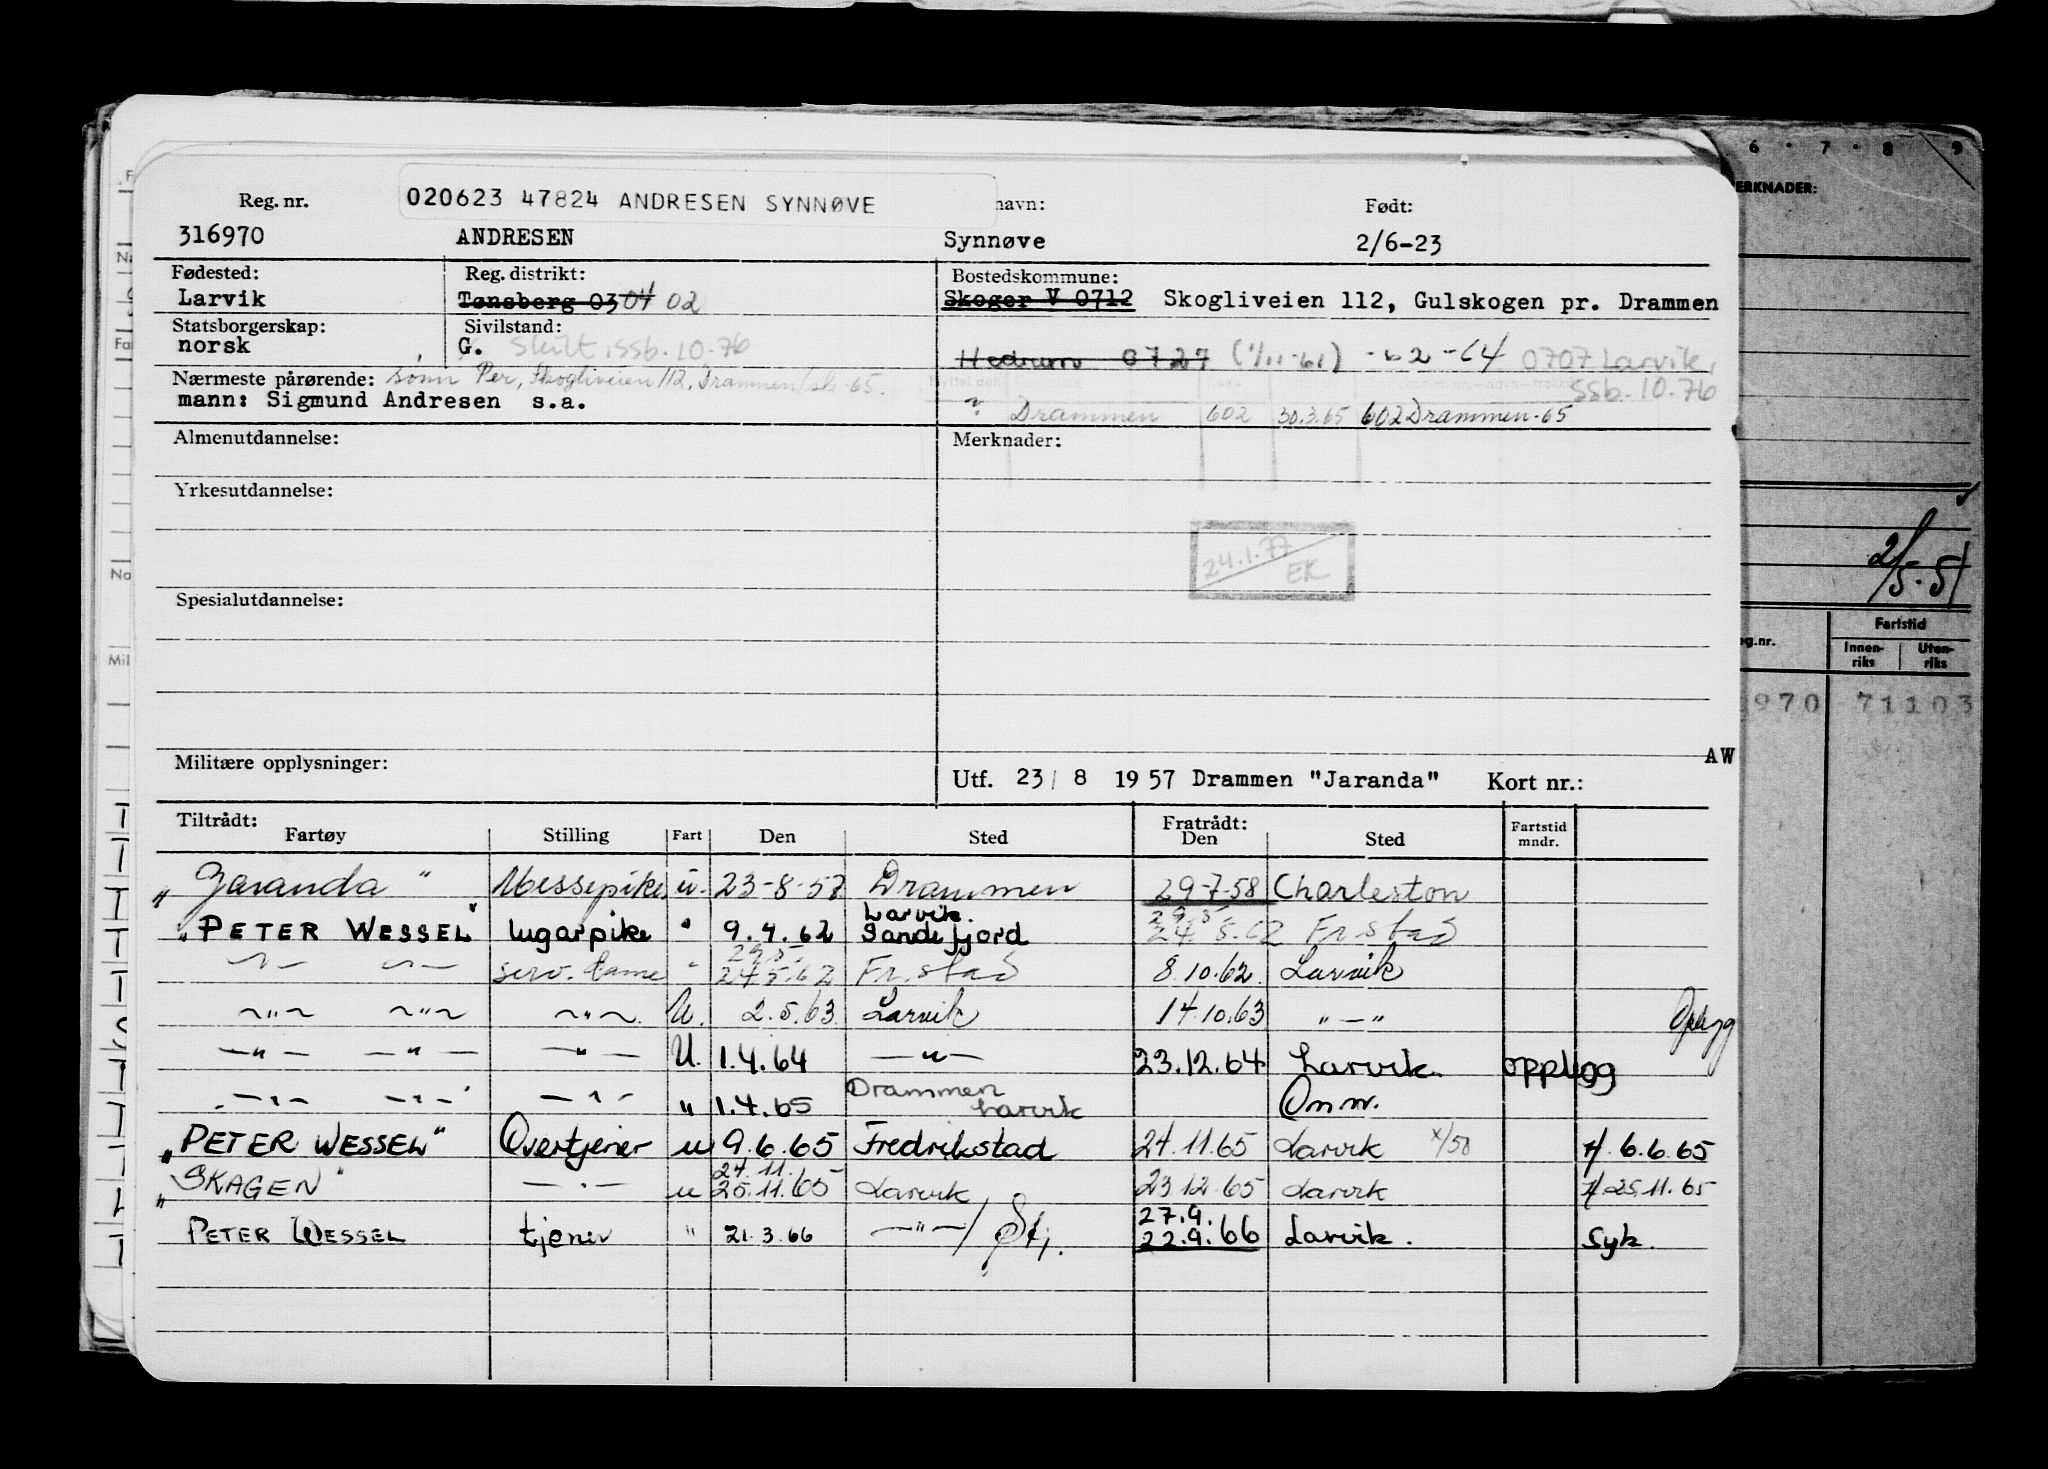 6 · 7 · 8 9
ERKNADER:
020623 47824 ANDRESEN SYNNØVE
Reg. nr. navn: Født:
316970 ANDRESEN Synnøve 2/6-23
Fødested: Reg. distrikt: Bostedskommune:
Larvik Tønsberg 03 04 02 Skoger V 0712 Skogliveien 112, Gulskogen pr. Drammen
Statsborgerskap: Sivilstand:
norsk G. Skilt, ssb. 10-76 Hedrum 0727 (1/11-61) -64 0707 Larvik,
Nærmeste pårørende: sønn Per, Skogliveien 112, Drammen ssb. 10-76
mann: Sigmund Andresen s.a. Drammen 602 30.3.65 602 Drammen-65
Almenutdannelse: Merknader:
Yrkesutdannelse:
24.1.77
EK
2/5-51
Spesialutdannelse:
Fartstid
og.nr. Innen-riks Uten-riks
970 71103
AW
Militære opplysninger: Utf. 23/ 8 1957 Drammen "Jaranda" Kort nr.:
Tiltrådt: Fratrådt:
Fartøy Stilling Fart Den Sted Den Sted Fartstid mndr.
"Jaranda" Messepike u. 23-8-57 Drammen 29-7-58 Charleston
"PETER WESSEL" lugarpike " 9.4.62 Larvik. Sandefjord 29.5 24.5.62 Fr.stad
—"— —"— serv. dame " 29.5 24.5.62 Fr.stad 8.10.62 Larvik
—"— —"— —"— U. 2.5.63 Larvik 14.10.63 —"— Opplygg
—"— —"— —"— U. 1.4.64 —"— 23.12.64 Larvik. opplygg
—"— —"— —"— " 1.4.65 Drammen Larvik Omm.
"PETER WESSEL" Overtjener u 9.6.65 Fredrikstad 24.11.65 Larvik x/50 6.6.65
"SKAGEN" —"— u 24.11. 25.11.65 Larvik 23.12.65 Larvik 25.11.65
PETER WESSEL tjener " 21.3.66 —"— 27.9. 22.9.66 Larvik. Syk.